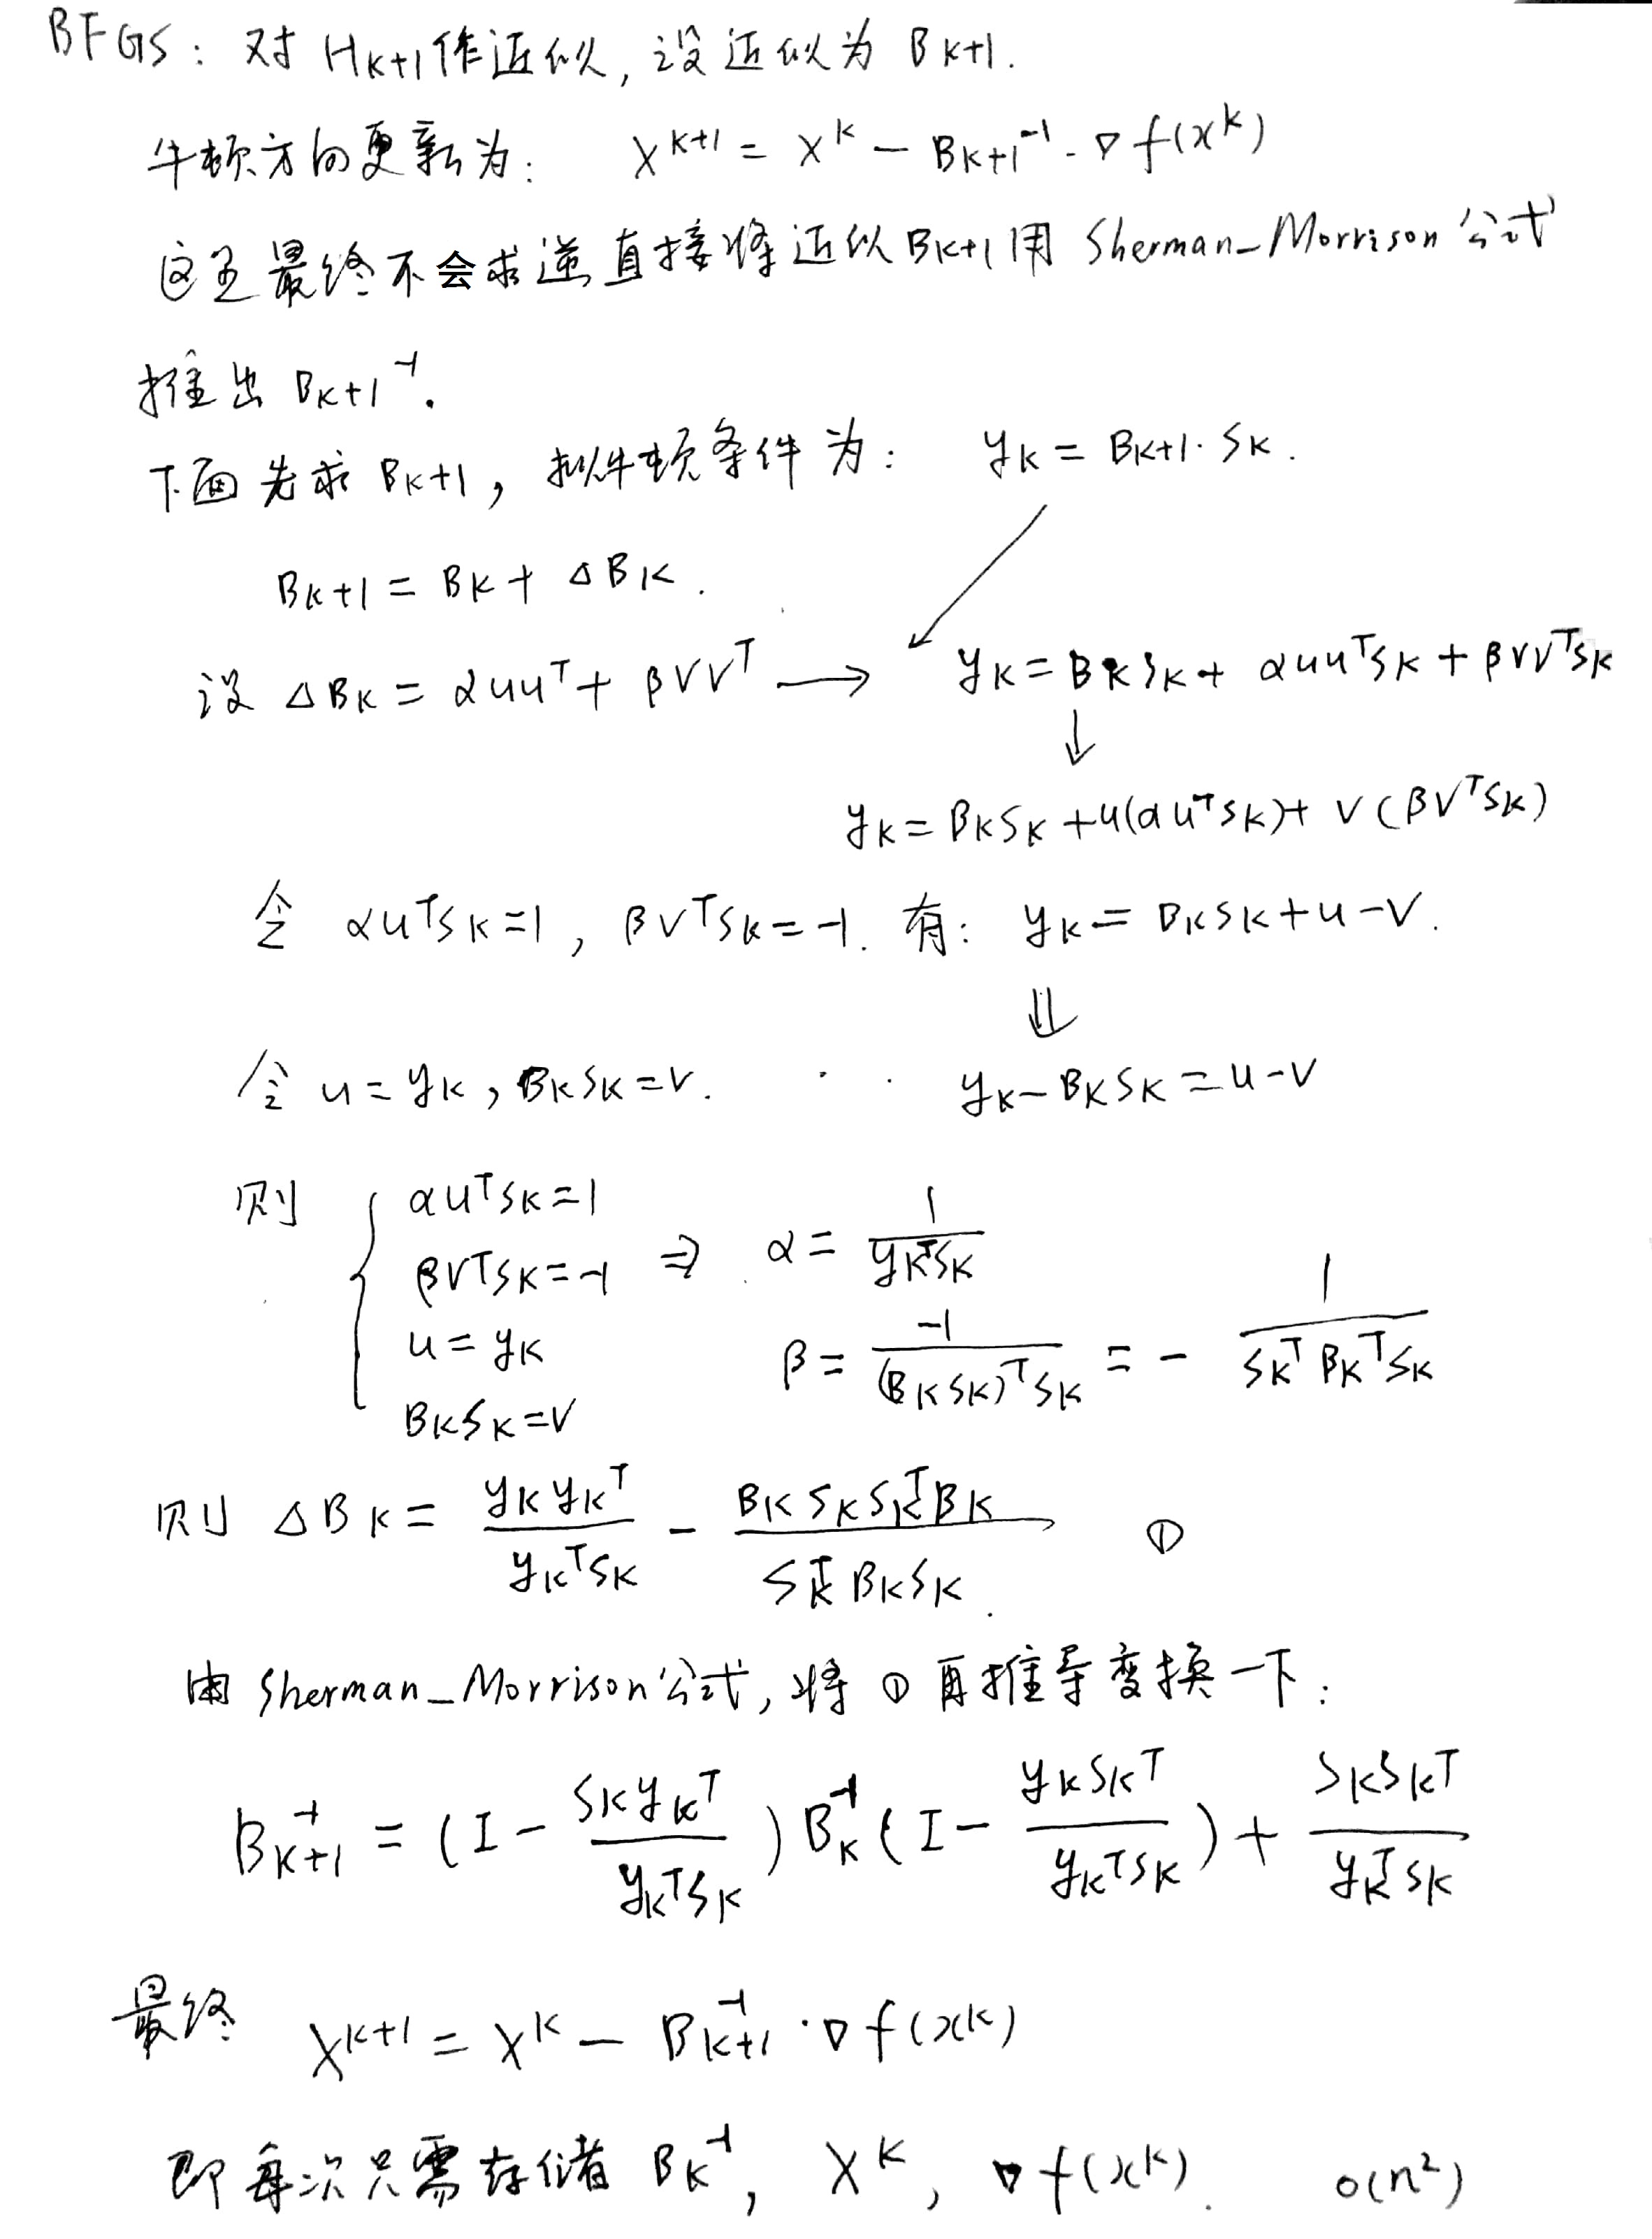 BFGS：对 H_{k+1}作近似，设近似为 B_{k+1}.
牛顿方向更新为： x^{k+1} = x^k − B_{k+1}^{-1} · ∇f(x^k)
这里最终不会求逆直接将近似B_{k+1}用 Sherman-Morrison 公式
推出 B_{k+1}^{-1}.
下面先求 B_{k+1}，拟牛顿条件为： y_k = B_{k+1}·s_k.
B_{k+1} = B_k + ΔB_k.
设 ΔB_k = αuu^T + βvv^T ⟶ y_k = B_k s_k + αuu^T s_k + βvv^T s_k
↓
y_k = B_k s_k + u(αu^T s_k) + v(βv^T s_k)
令 αu^T s_k = 1，βv^T s_k = −1. 有： y_k = B_k s_k + u − v.
⇓
令 u = y_k，B_k s_k = v. y_k − B_k s_k = u − v
则 { αu^T s_k = 1
βv^T s_k = −1 ⇒ α = \frac{1}{y_k^T s_k}
u = y_k β = \frac{−1}{(B_k s_k)^T s_k} = − \frac{1}{s_k^T B_k^T s_k}
B_k s_k = v
则 ΔB_k = \frac{y_k y_k^T}{y_k^T s_k} − \frac{B_k s_k s_k^T B_k}{s_k^T B_k s_k}. ①
由 Sherman-Morrison公式，将 ① 再推导变换一下：
B_{k+1}^{-1} = (I − \frac{s_k y_k^T}{y_k^T s_k}) B_k^{-1} (I − \frac{y_k s_k^T}{y_k^T s_k}) + \frac{s_k s_k^T}{y_k^T s_k}
最终 x^{k+1} = x^k − B_{k+1}^{-1} · ∇f(x^k)
即每次只需存储 B_k^{-1}， x^k， ∇f(x^k). o(n²)